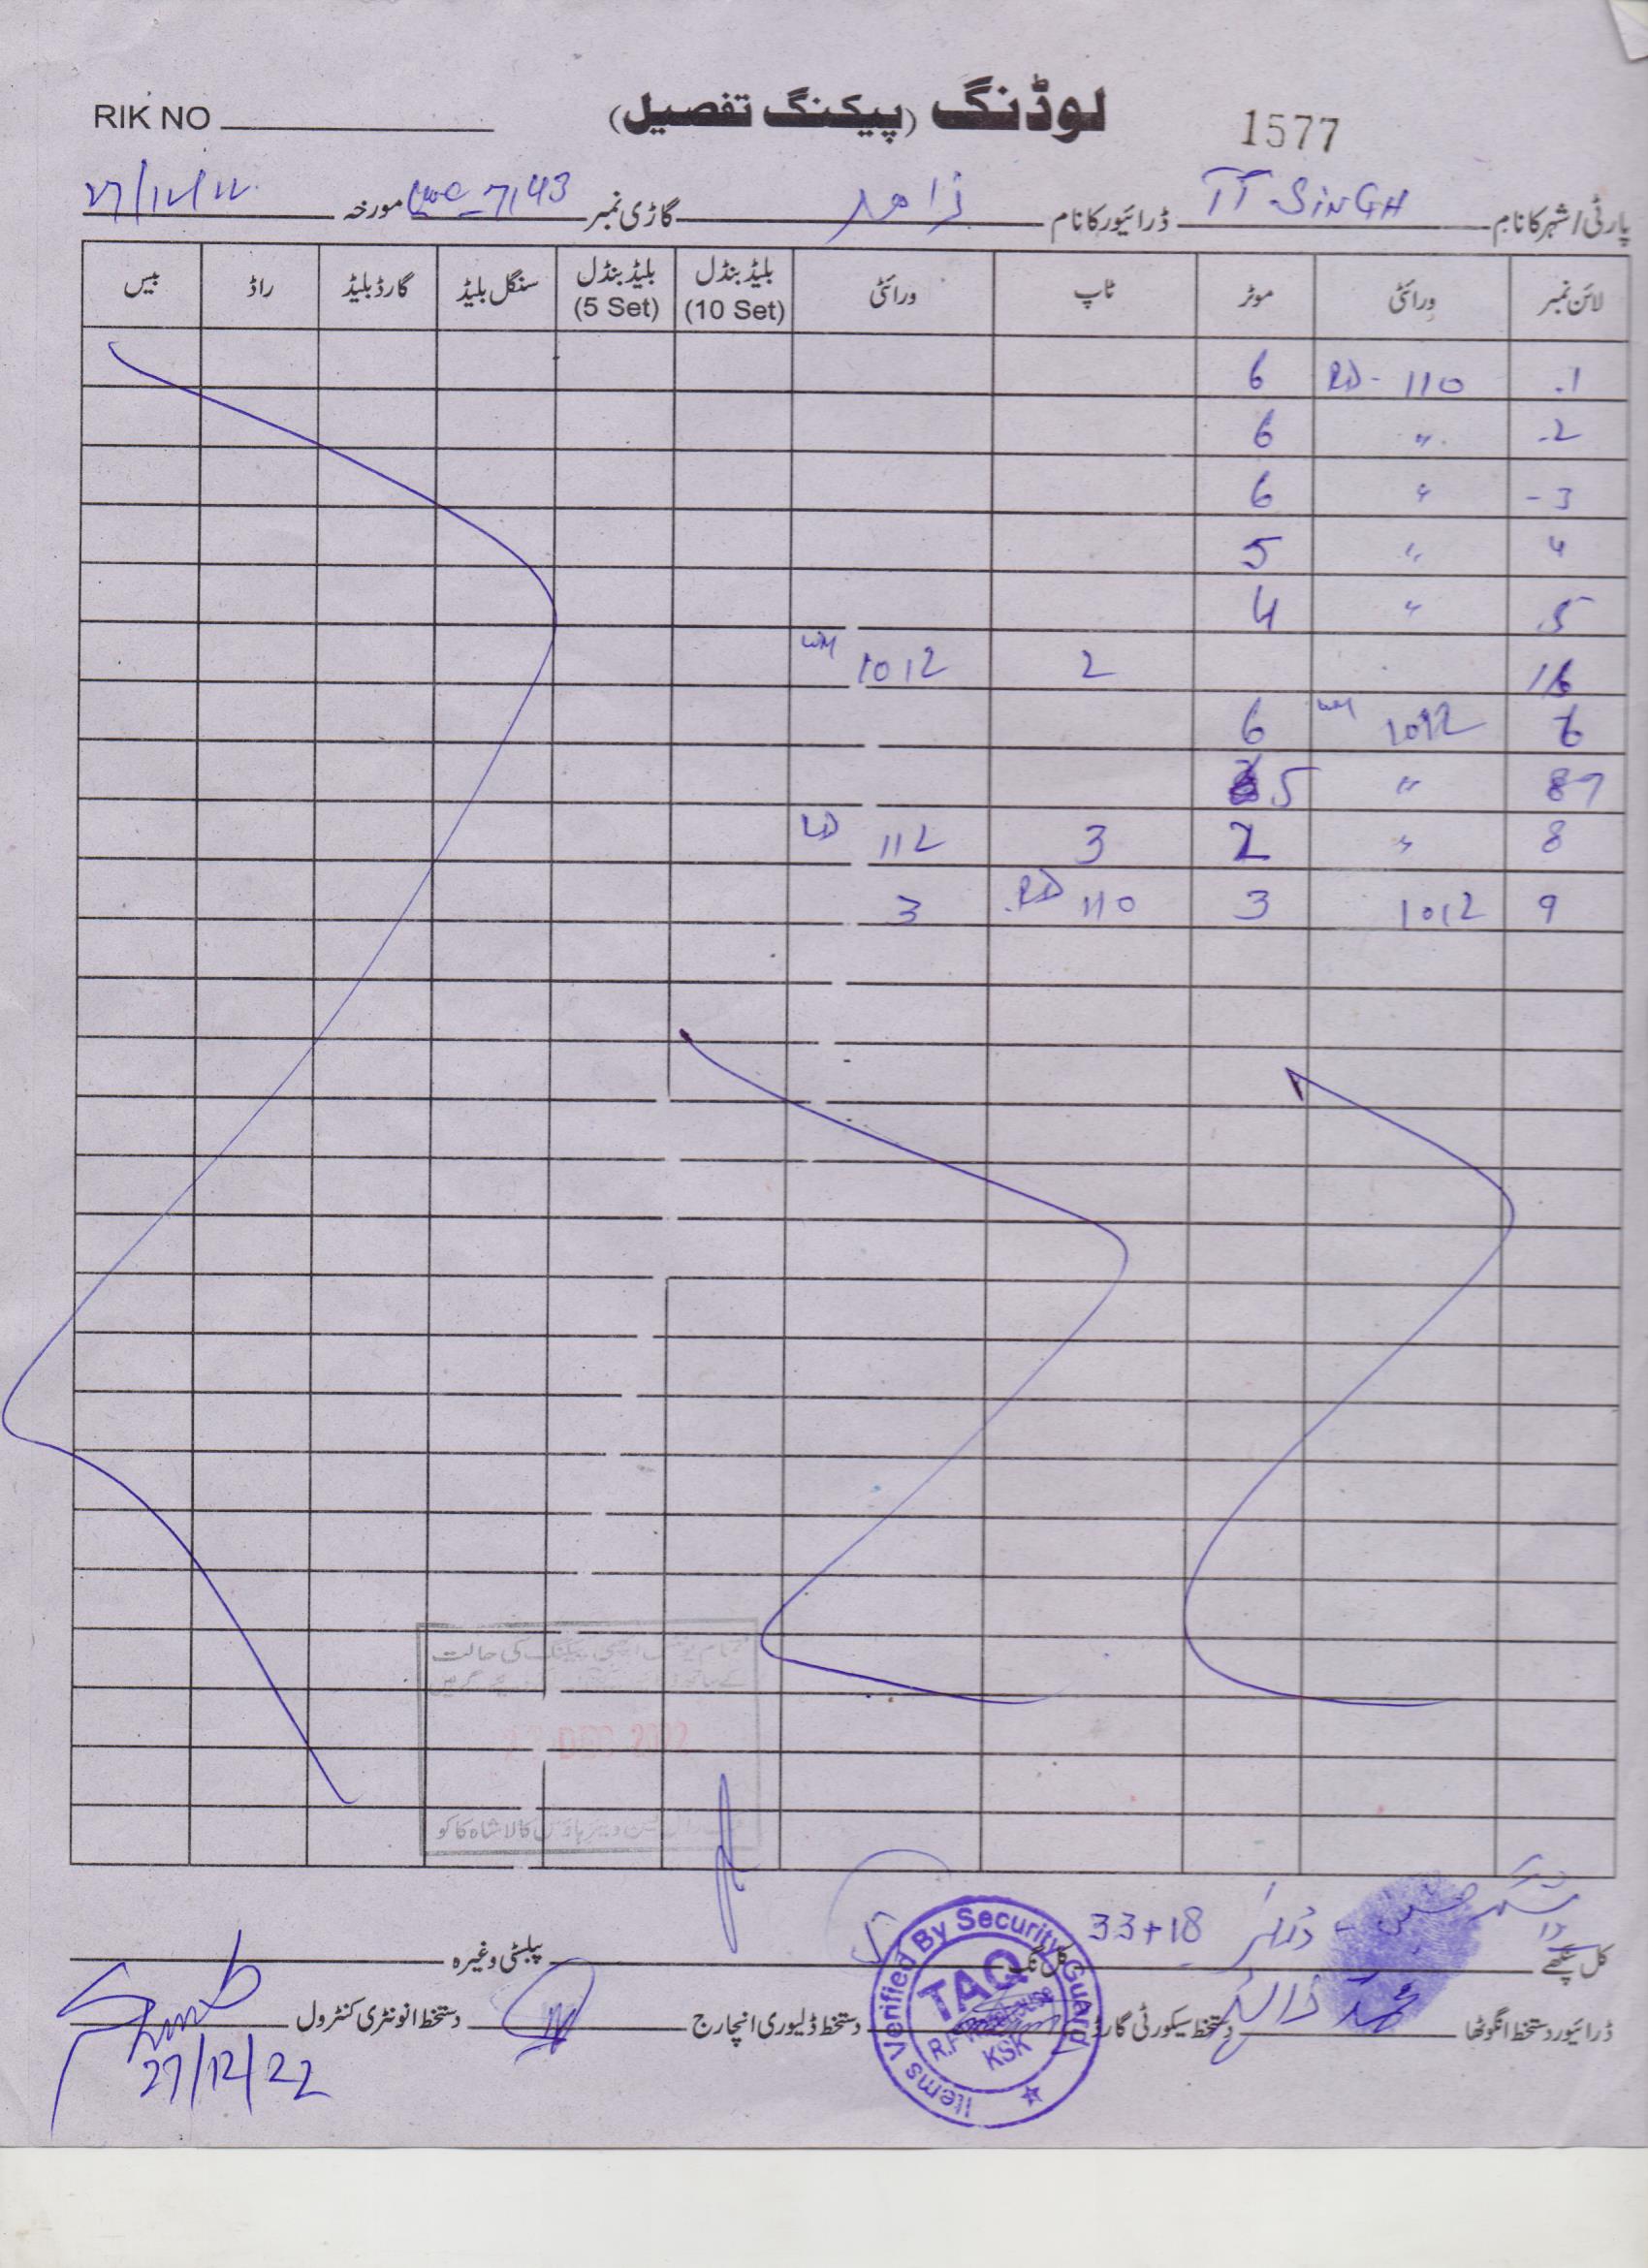 RIK NO
لوڈنگ (پیکنگ تفصیل)
1577
پارٹی/شہر کا نام TT SINGH ڈرائیور کا نام زاھد گاڑی نمبر 7143 مورخہ 27/12/22
لائن نمبر ورائٹی موٹر ٹاپ ورائٹی بلیڈ بنڈل (10 Set) بلیڈ بنڈل (5 Set) سنگل بلیڈ گارڈ بلیڈ راڈ بیس
.1 RD - 110 6
-2 〃 6
-3 〃 6
4 〃 5
.5 〃 4
2 WM 1012
6 WM 1012 6
7 〃 5
8 〃 2 3 RD 112
9 1012 3 RD 110 3
تمام یونٹس اچھی پیکنگ کی حالت
DEC
کالا شاہ کاکو
کل پنکھے 33+18 کل نگ پبلسٹی وغیرہ
ڈرائیور دستخط انگوٹھا دستخط سیکورٹی گارڈ دستخط ڈلیوری انچارج دستخط انونٹری کنٹرول
Items Verified By Security Guard
TAQ
R.F
KSK
27/12/22